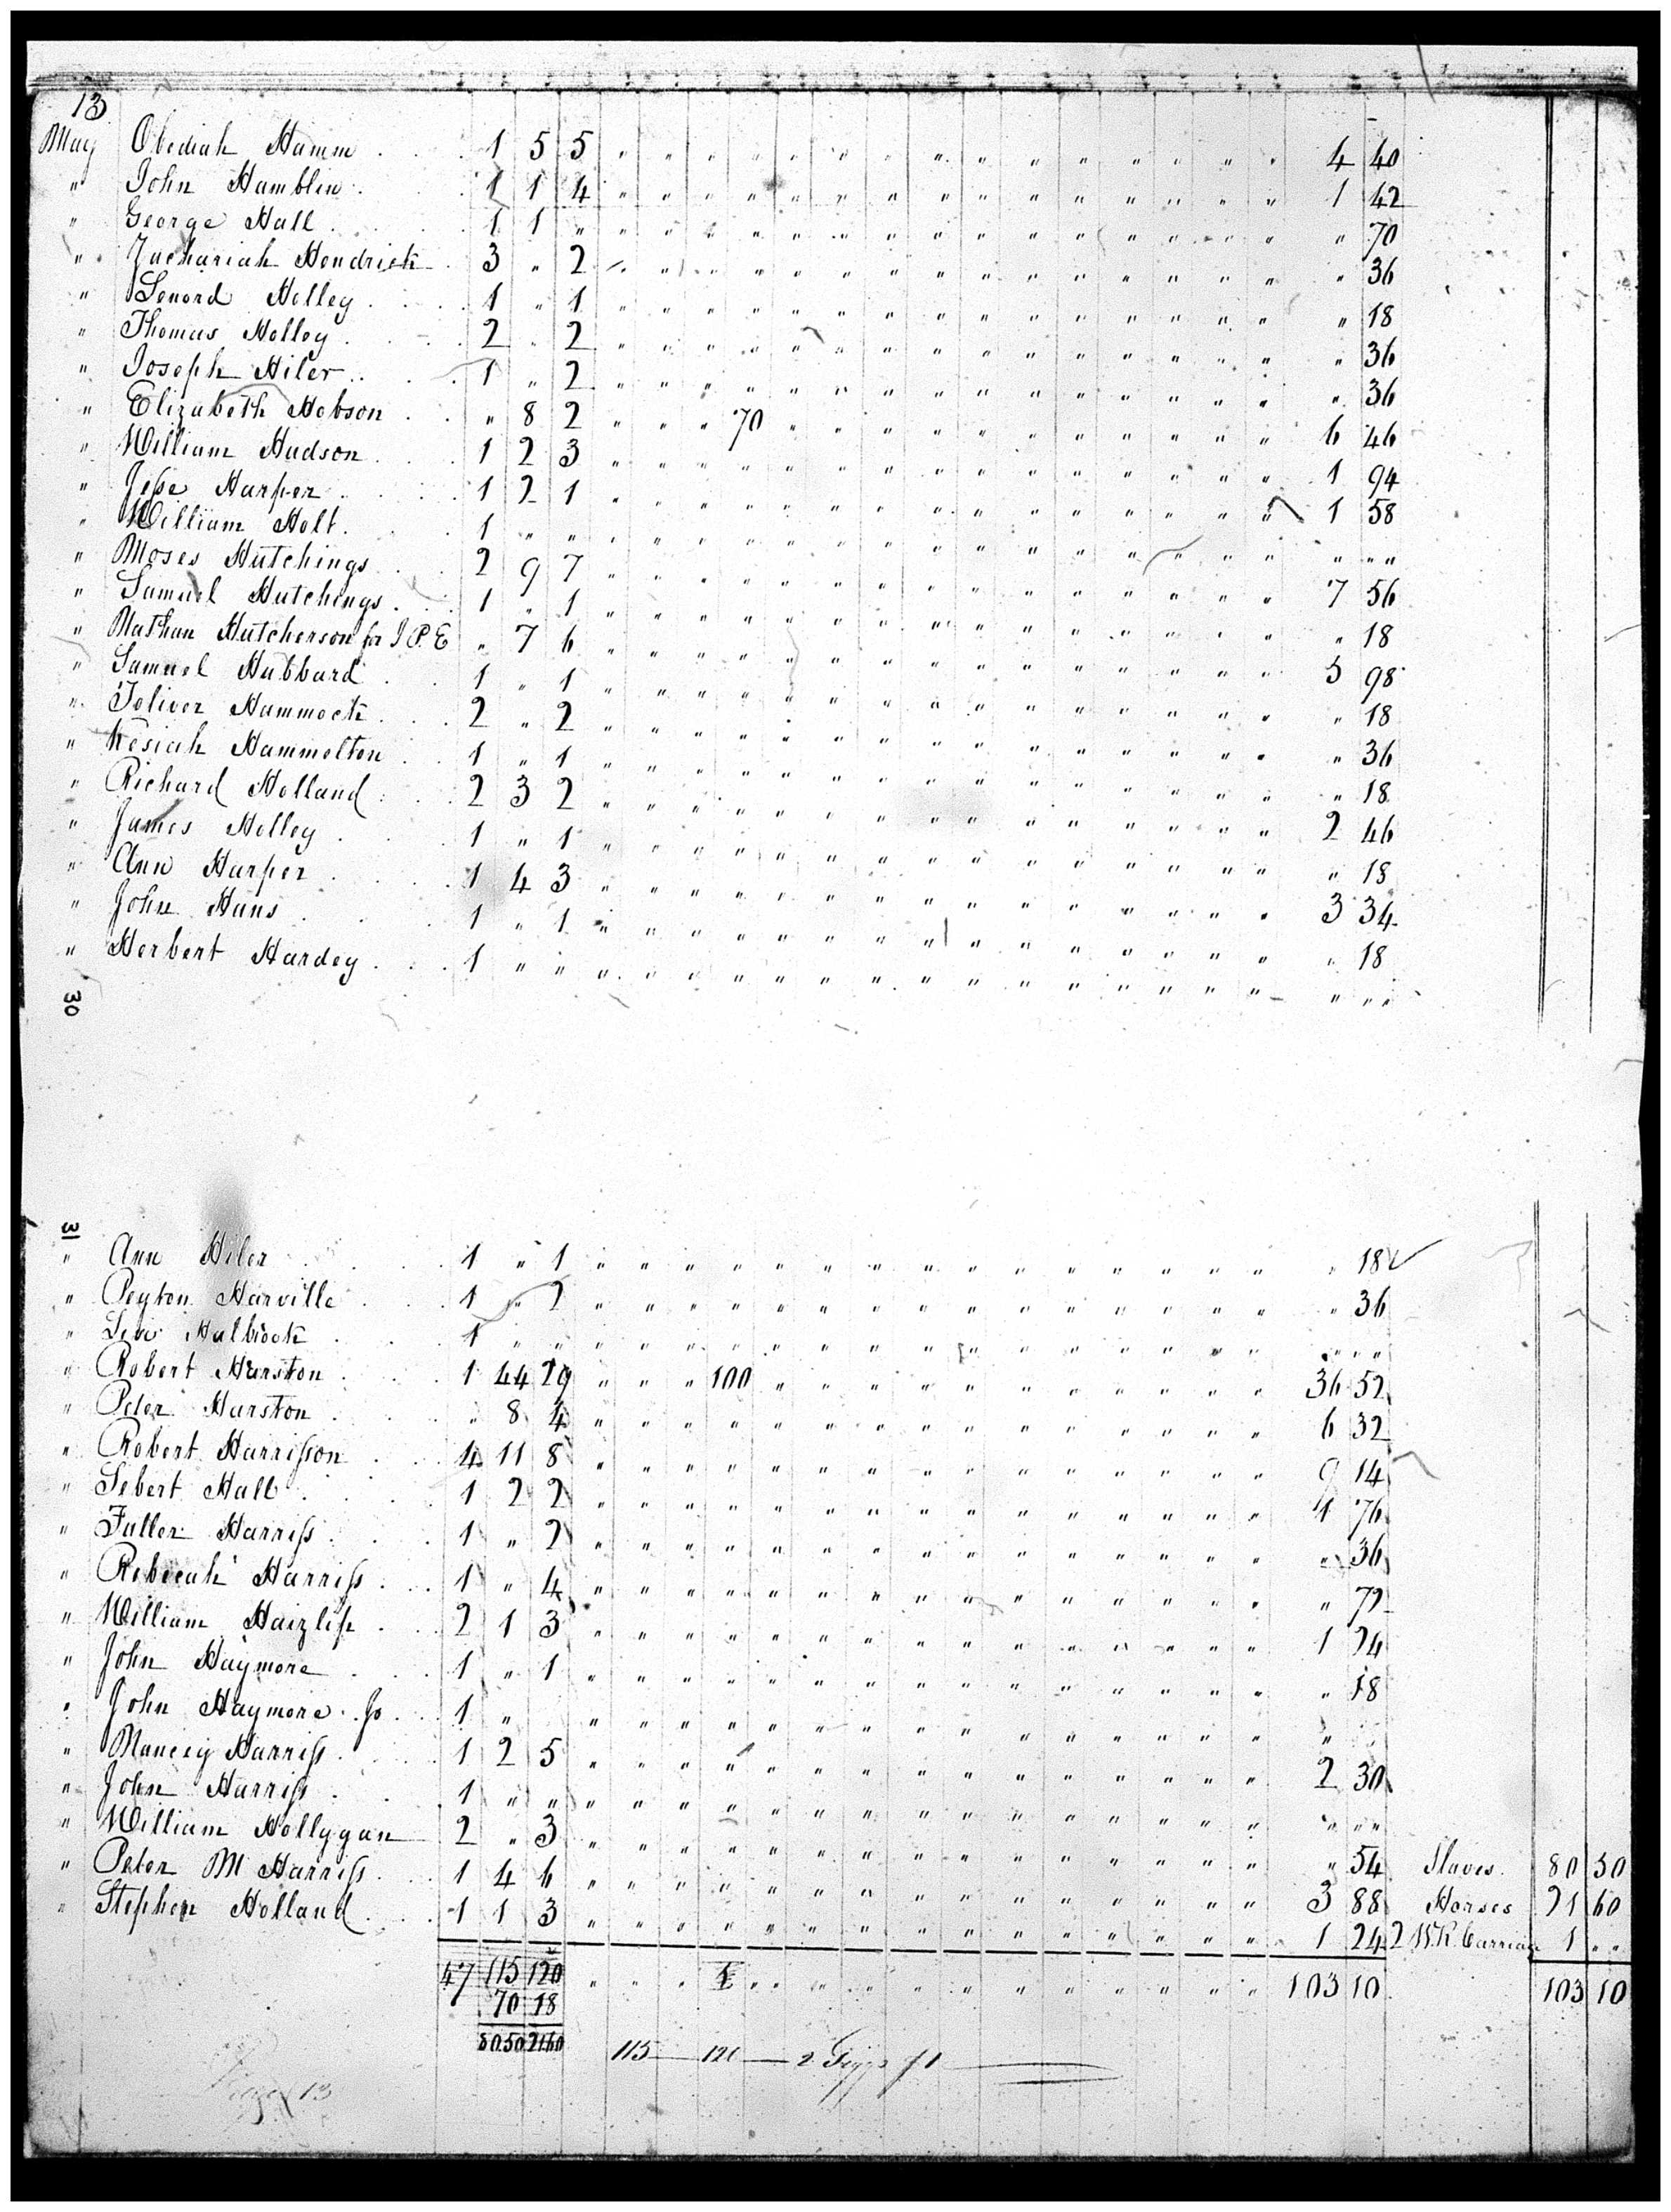 13
May Obediah Hamm 1 5 5 " " " " " " " " " " " " " " " 4 40
" John Hamblin 1 1 4 " " " " " " " " " " " " " " " 1 42
" George Hall 1 1 " " " " " " " " " " " " " " " " " 70
" Zachariah Hendrick 3 " 2 " " " " " " " " " " " " " " " " 36
" Lenord Holley 1 " 1 " " " " " " " " " " " " " " " " 18
" Thomas Holley 2 " 2 " " " " " " " " " " " " " " " " 36
" Joseph Hiler 1 " 2 " " " " " " " " " " " " " " " " 36
" Elizabeth Hobson " 8 2 " " " 70 " " " " " " " " " " " 6 46
" William Hudson 1 2 3 " " " " " " " " " " " " " " " 1 94
" Jesse Harper 1 2 1 " " " " " " " " " " " " " " " 1 58
" William Holt 1 " " " " " " " " " " " " " " " " " " " "
" Moses Hutchings 2 9 7 " " " " " " " " " " " " " " " 7 56
" Samuel Hutchings 1 " 1 " " " " " " " " " " " " " " " " 18
" Nathan Hutcherson for I P. E " 7 6 " " " " " " " " " " " " " " " 5 98
" Samuel Hubbard 1 " 1 " " " " " " " " " " " " " " " " 18
" Toliver Hammock 2 " 2 " " " " " " " " " " " " " " " " 36
" Kesiah Hammelton 1 " 1 " " " " " " " " " " " " " " " " 18
" Richard Holland 2 3 2 " " " " " " " " " " " " " " " 2 46
" James Holley 1 " 1 " " " " " " " " " " " " " " " " 18
" Ann Harper 1 4 3 " " " " " " " " " " " " " " " 3 34
" John Hans 1 " 1 " " " " " " " " " " " " " " " " 18
" Herbert Hardey 1 " " " " " " " " " " " " " " " " " " " "
30
31
" Ann Hiler 1 " 1 " " " " " " " " " " " " " " " " 18
" Peyton Harville 1 " 2 " " " " " " " " " " " " " " " " 36
" Halbrook 1 " " " " " " " " " " " " " " " " " " " "
" Robert Harston 1 44 29 " " " 100 " " " " " " " " " " " 36 52
" Peter Harston " 8 4 " " " " " " " " " " " " " " " 6 32
" Robert Harrisson 4 11 8 " " " " " " " " " " " " " " " 9 14
" Sebert Hall 1 2 2 " " " " " " " " " " " " " " " 1 76
" Fuller Harriss 1 " 2 " " " " " " " " " " " " " " " " 36
" Rebecah Harriss 1 " 4 " " " " " " " " " " " " " " " " 72
" William Haizlip 2 1 3 " " " " " " " " " " " " " " " 1 24
" John Haymore 1 " 1 " " " " " " " " " " " " " " " " 18
" John Haymore Jr 1 " " " " " " " " " " " " " " " " "
" Mancey Harriss 1 2 5 " " " " " " " " " " " " " " " 2 30
" John Harriss 1 " " " " " " " " " " " " " " " " " " " "
" William Hollygan 2 " 3 " " " " " " " " " " " " " " " " 54 Slaves 80 50
" Peter M Harriss 1 4 6 " " " " " " " " " " " " " " " 3 88 Horses 21 60
" Stephen Holland 1 1 3 " " " " " " " " " " " " " " " 1 24 2 W.R Carriage 1 " "
47 115 120 " " " 1 " " " " " " " " " " " 103 10 103 10
70 18
8050 2160
115 — 120 — 2 Giggs $1
Page 13